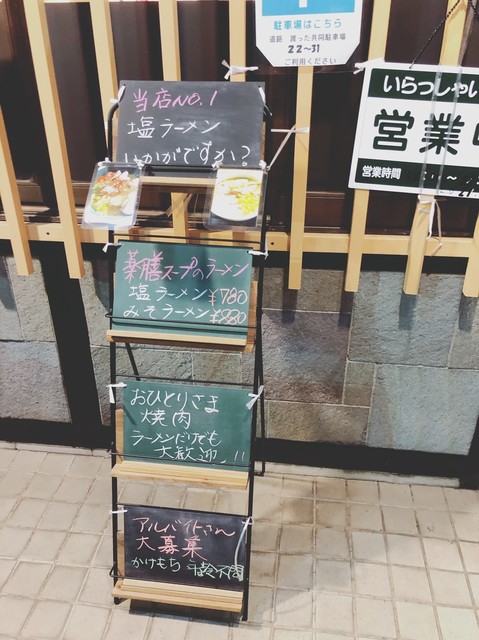 駐車場はこちら
道路 渡った共同駐車場
22〜31
ご利用ください
いらっしゃい
営業
営業時間
当店NO.1
塩ラーメン
いかがですか?
薬膳スープのラーメン
塩ラーメン ¥780
みそラーメン ¥880
おひとりさま
焼肉
ラーメンだけでも
大歓迎!!
アルバイトさん
大募集
かけもち